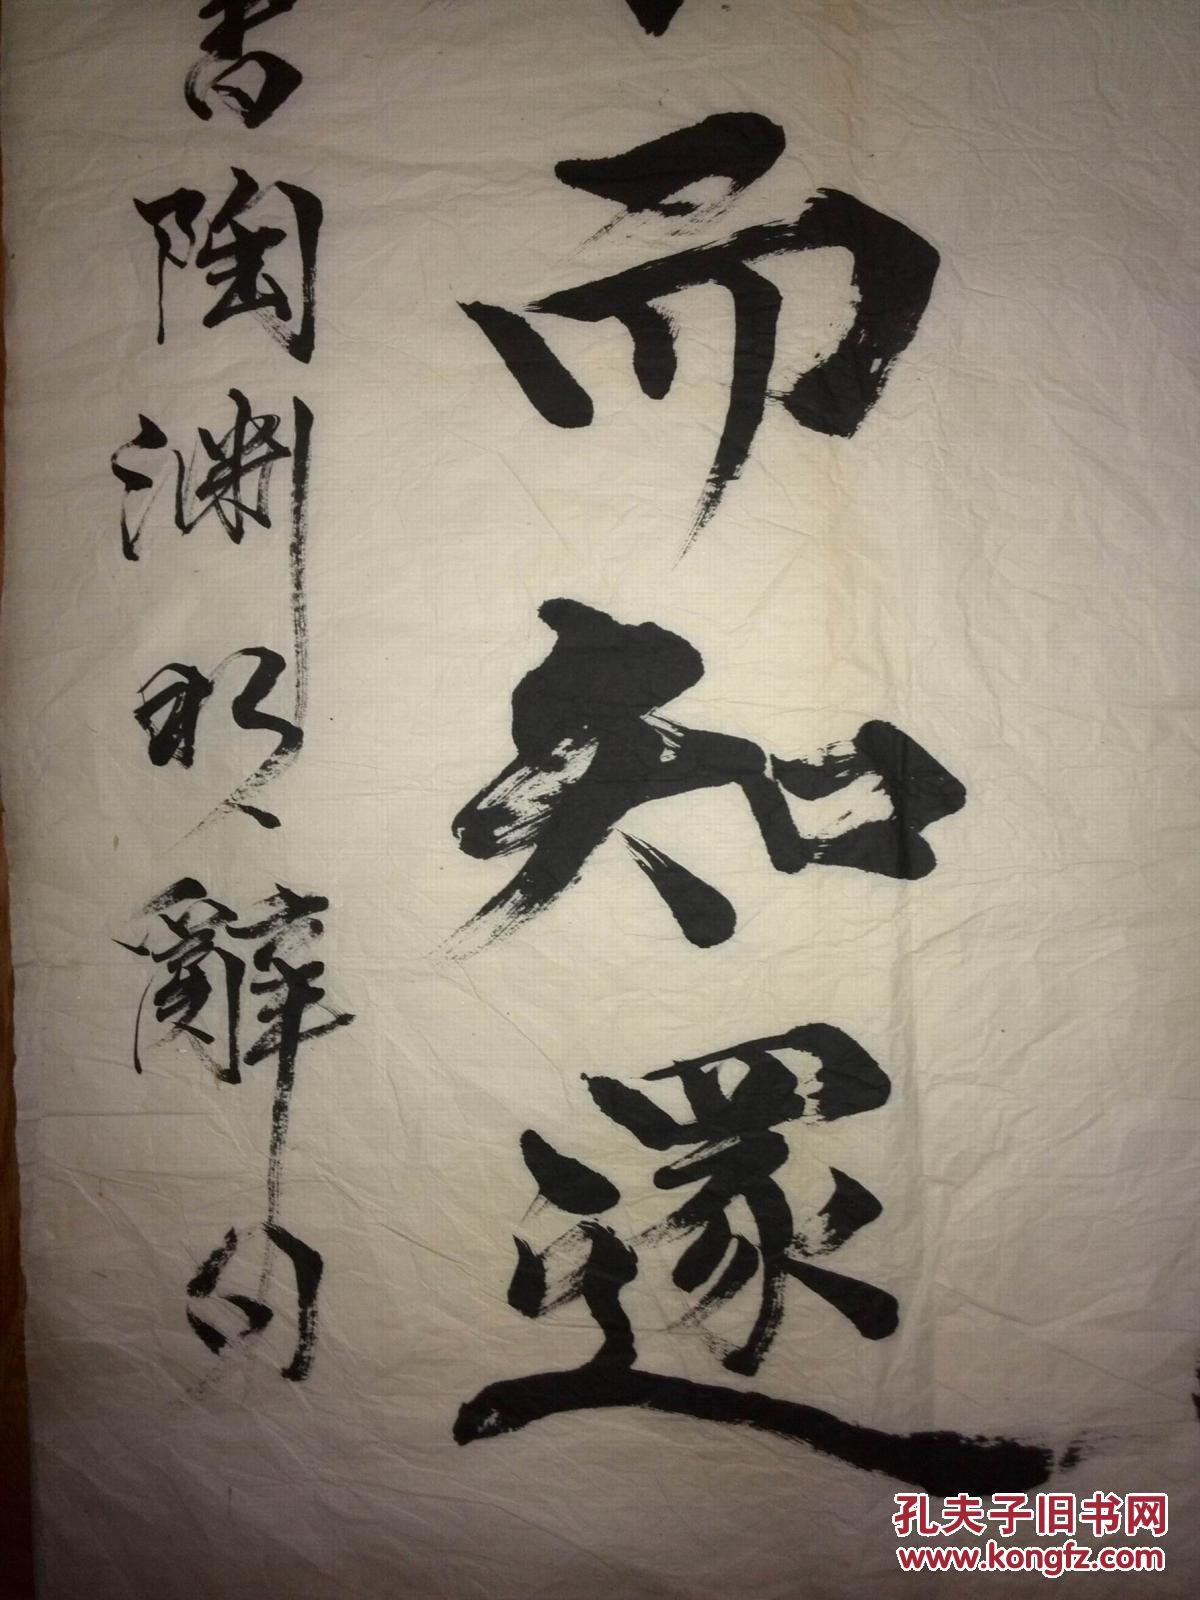 而知還
書陶渊明辭句
孔夫子旧书网
www.kongfz.com